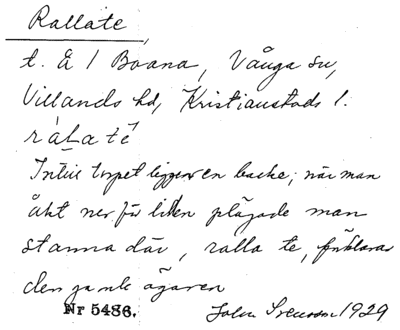 Rallate
t. Å / Boana, Vånga sn,
Villands hd, Kristianstads l.
Intill torpet ligger en backe; när man
åkt ner för liden plägade man
stanna där, ralla te, förklarar
den gamle ägaren
Nr 5486. John Svensson 1929